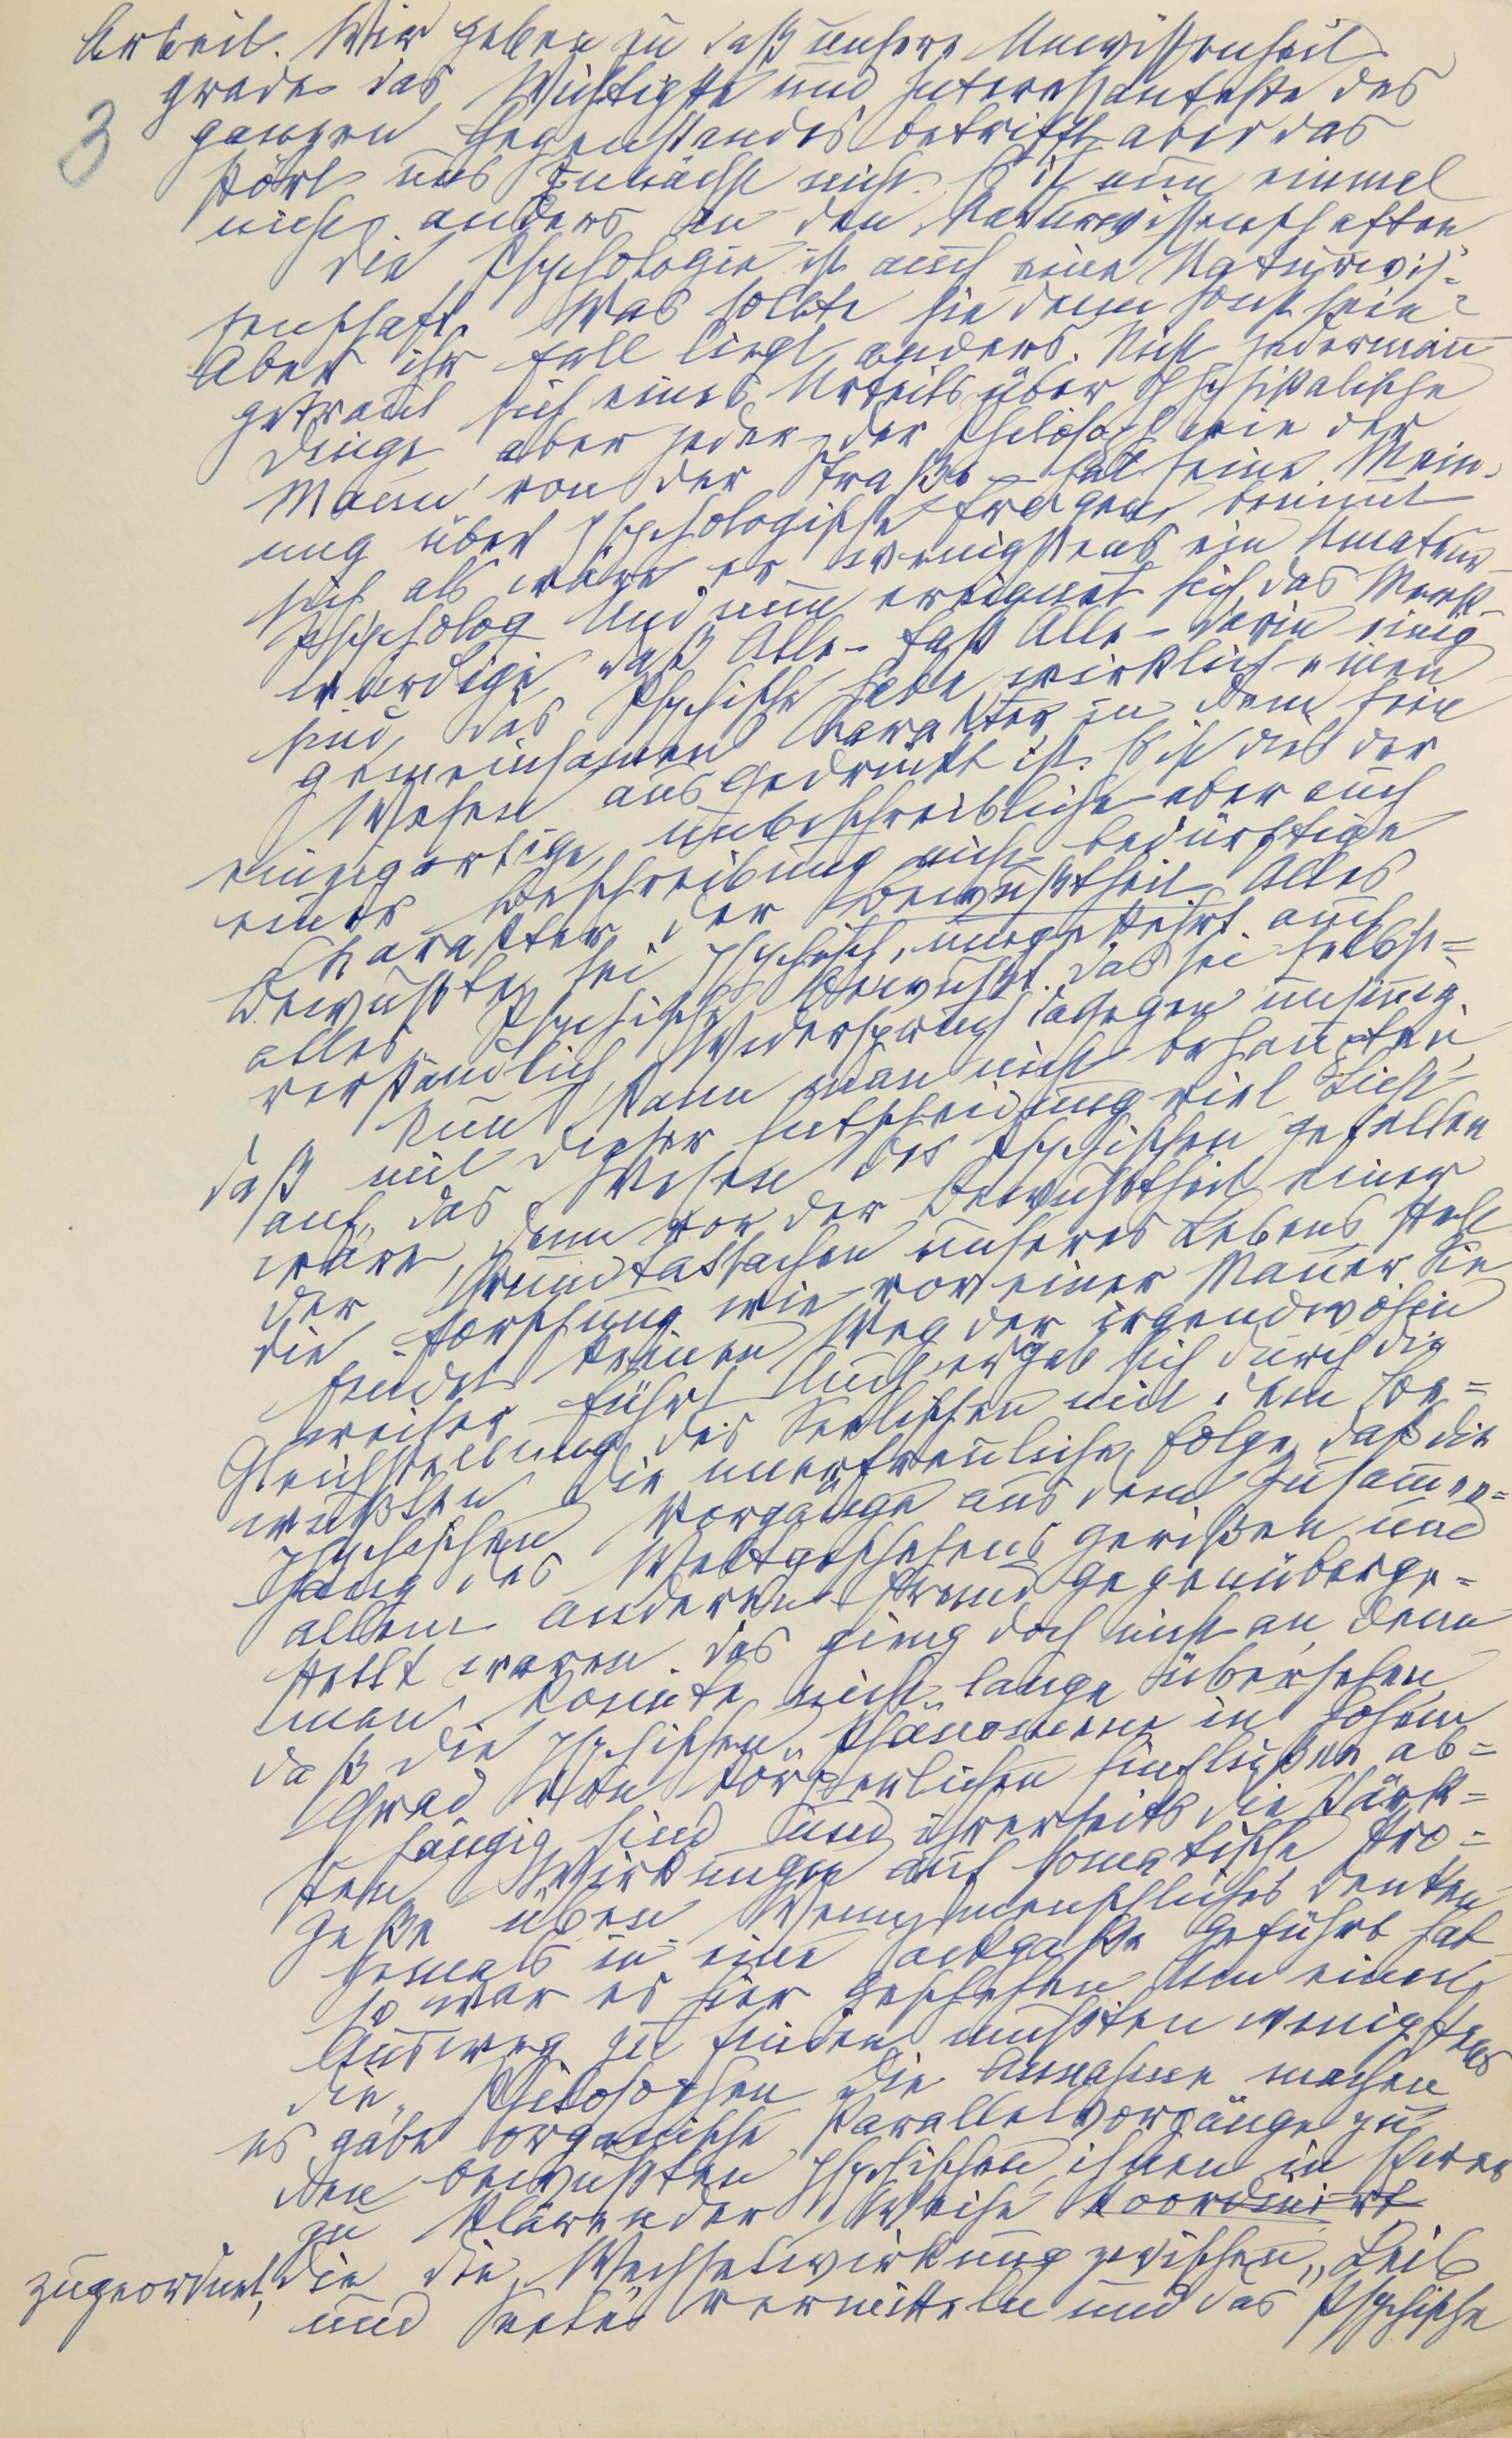 3
Arbeit. Wir geben zu daß unsere Unwissenheit
grade das Wichtigste und Interessanteste des
ganzen Gegenstandes betrifft aber das
stört uns zunächst nicht. Es ist nun einmal
nicht anders in den Naturwissenschaften
die Psychologie ist auch eine Naturwis=
senschaft. Was sollte sie denn sonst sein?
Aber ihr Fall liegt anders. Nicht jedermann
getraut sich eines Urteils über physikalische
Dinge aber jeder – der Philosoph wie der
Mann von der Straße – hat seine Mein-
ung über psychologische Fragen, benimmt
sich als wäre er wenigstens ein Amateur-
psycholog Und nun ereignet sich das Merk-
würdige daß Alle – fast Alle – darin einig
sind, das Psychische habe wirklich einen
gemeinsamen Charakter in dem sein
Wesen ausgedrückt ist. Es ist dies der
einzigartige, unbeschreibliche aber auch
einer Beschreibung nicht bedürftige
Charakter der Bewußtheit Alles
Bewußte sei psychisch, umgekehrt auch
alles Psychische bewußt. Das sei selbst=
verständlich, Widerspruch dagegen unsinnig.
Nun kann man nicht behaupten,
daß mit dieser Entscheidung viel Licht
auf das Wesen des Psychischen gefallen
wäre, denn vor der Bewußtheit, einer
der Grundtatsachen unseres Lebens steht
die Forschung wie vor einer Mauer Sie
findet keinen Weg der irgendwohin
weiter führt Auch ergab sich durch die
Gleichstellung des Seelischen mit dem Be=
wußten die unerfreuliche Folge, daß die
psychischen Vorgänge aus dem Zusammen=
hang des Weltgeschehens gerißen und
allem anderen fremd gegenüberge=
stellt waren. Das gieng doch nicht an, denn
man konnte nicht lange übersehen
daß die psychischen Phänomene in hohem
Grad von körperlichen Einflüßen ab=
hängig sind und ihrerseits die stärk=
sten Wirkungen auf somatische Pro=
zeße üben Wenn menschliches Denken
jemals in eine Sackgaße geführt hat
so war es hier geschehen Um einen
Ausweg zu finden mußten wenigstens
die Philosophen die Annahme machen
es gäbe organische Parallelvorgänge zu
den bewußten psychischen, ihnen in schwer
zu klärender Weise koordinirt
zugeordnet, die die Wechselwirkung zwischen „Leib
und Seele" vermitteln und das Psychische